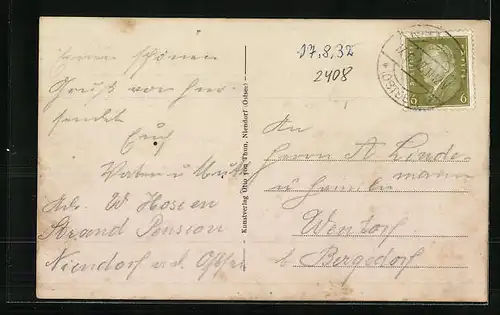 Einen schönen
Gruß von hier
sendet
Euch
Vater u Mutter
Adr. W Hossen
Strand Pension
Niendorf a.d. Ostsee
Kunstverlag Otto von Thun, Niendorf (Ostsee)
17.8.32
2408
6 6
An
Herrn A Linde-
mann
u Familie
Wentorf
b Bergedorf